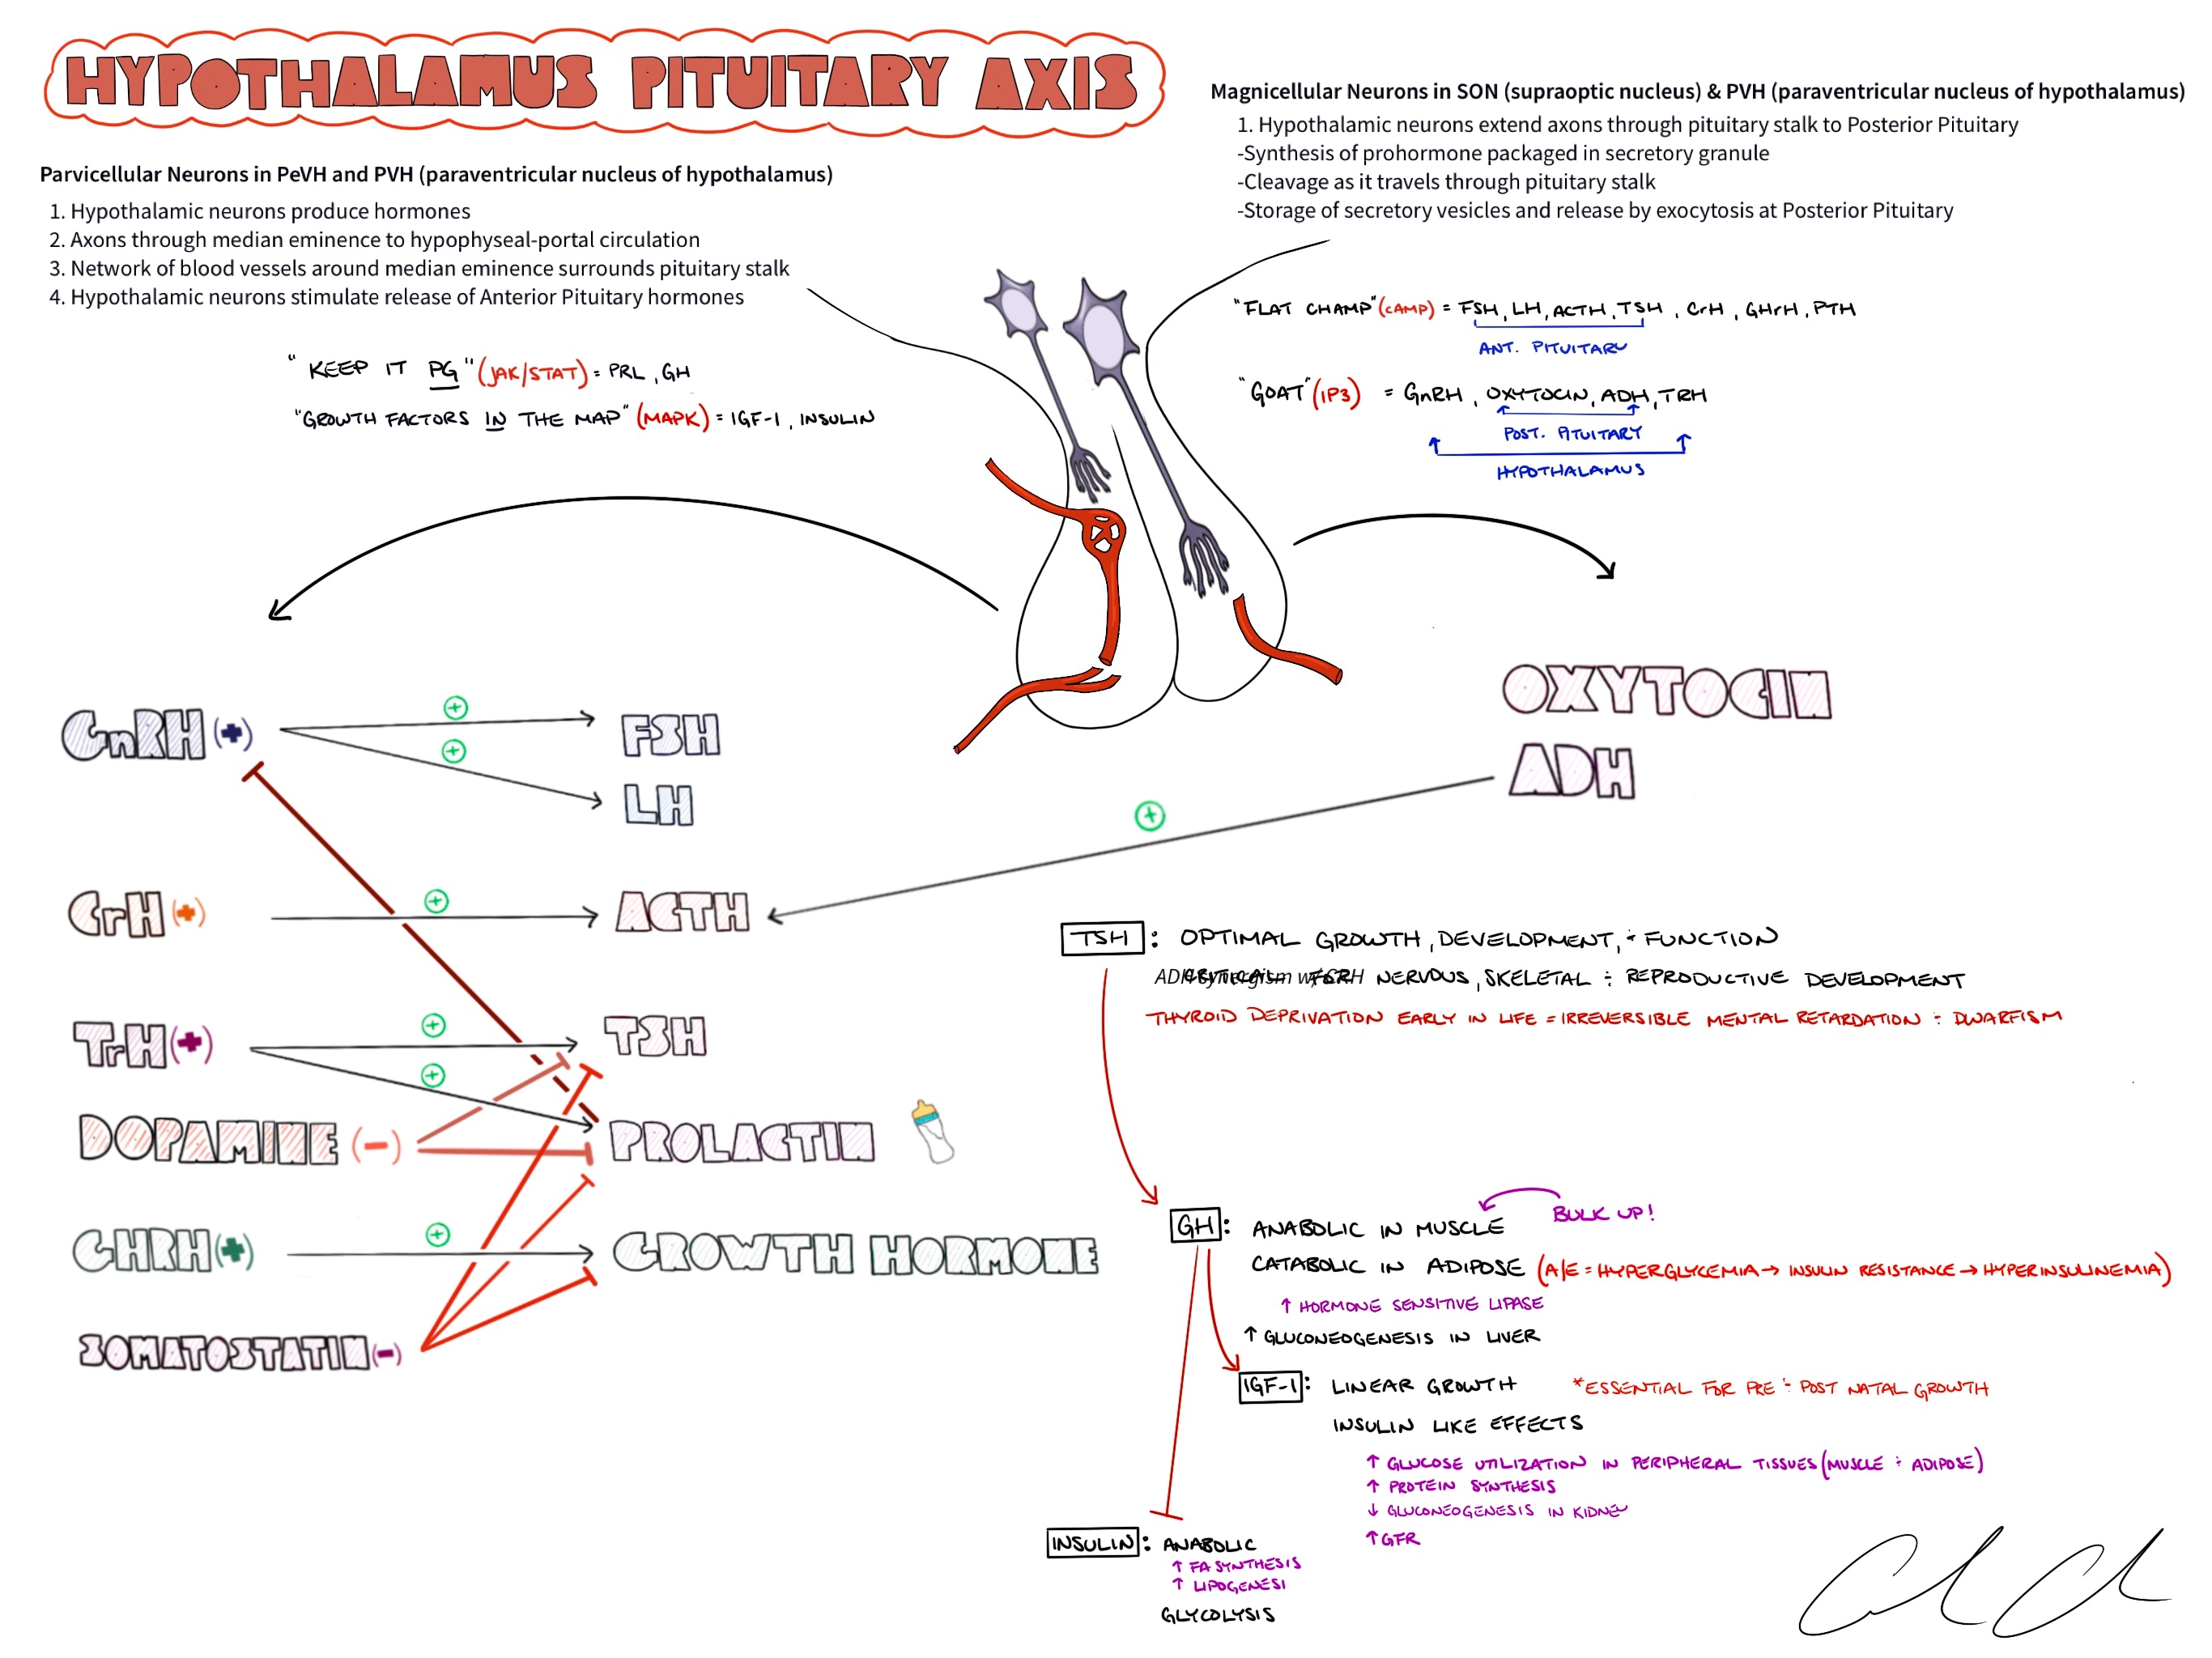 HYPOTHALAMUS PITUITARY AXIS
Parvicellular Neurons in PeVH and PVH (paraventricular nucleus of hypothalamus)
1. Hypothalamic neurons produce hormones
2. Axons through median eminence to hypophyseal-portal circulation
3. Network of blood vessels around median eminence surrounds pituitary stalk
4. Hypothalamic neurons stimulate release of Anterior Pituitary hormones
Magnicellular Neurons in SON (supraoptic nucleus) & PVH (paraventricular nucleus of hypothalamus)
1. Hypothalamic neurons extend axons through pituitary stalk to Posterior Pituitary
-Synthesis of prohormone packaged in secretory granule
-Cleavage as it travels through pituitary stalk
-Storage of secretory vesicles and release by exocytosis at Posterior Pituitary
"KEEP IT PG" (JAK/STAT) = PRL, GH
"GROWTH FACTORS IN THE MAP" (MAPK) = IGF-1, INSULIN
"FLAT CHAMP" (cAMP) = FSH, LH, ACTH, TSH, CrH, GHrH, PTH
ANT. PITUITARY
"GOAT" (IP3) = GnRH, OXYTOCIN, ADH, TRH
POST. PITUITARY
HYPOTHALAMUS
GnRH (+)
+
+
FSH
LH
OXYTOCIN
ADH
+
CrH (+)
+
ACTH
TrH (+)
+
+
TSH
DOPAMINE (-)
PROLACTIN
GHRH (+)
+
GROWTH HORMONE
SOMATOSTATIN (-)
TSH: OPTIMAL GROWTH, DEVELOPMENT, ÷ FUNCTION
ADH synergism w/ CRH
CRITICAL FOR NERVOUS, SKELETAL ÷ REPRODUCTIVE DEVELOPMENT
THYROID DEPRIVATION EARLY IN LIFE = IRREVERSIBLE MENTAL RETARDATION ÷ DWARFISM
GH: ANABOLIC IN MUSCLE
BULK UP!
CATABOLIC IN ADIPOSE (A/E = HYPERGLYCEMIA → INSULIN RESISTANCE → HYPERINSULINEMIA)
↑ HORMONE SENSITIVE LIPASE
↑ GLUCONEOGENESIS IN LIVER
IGF-1: LINEAR GROWTH *ESSENTIAL FOR PRE ÷ POST NATAL GROWTH
INSULIN LIKE EFFECTS
↑ GLUCOSE UTILIZATION IN PERIPHERAL TISSUES (MUSCLE ÷ ADIPOSE)
↑ PROTEIN SYNTHESIS
↓ GLUCONEOGENESIS IN KIDNEY
↑ GFR
INSULIN: ANABOLIC
↑ FA SYNTHESIS
↑ LIPOGENESI
GLYCOLYSIS